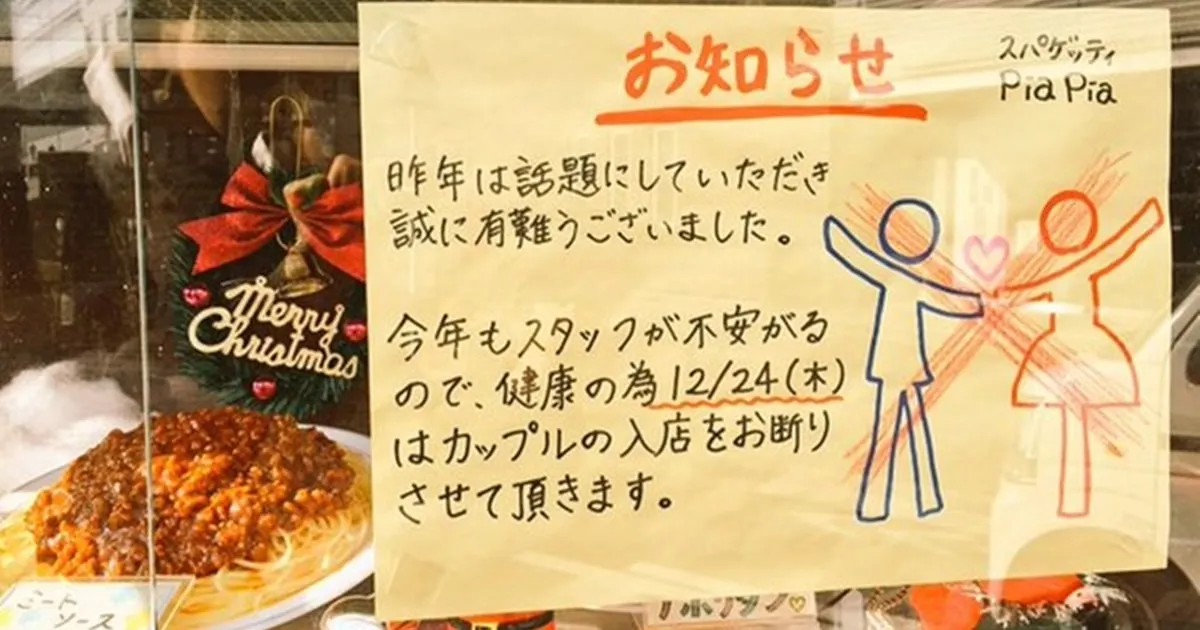 お知らせ
スパゲッティ
Pia Pia
昨年は話題にしていただき
誠に有難うございました。
今年もスタッフが不安がる
ので、健康の為12/24(木)
はカップルの入店をお断り
させて頂きます。
Merry
Christmas
ミート
ソース